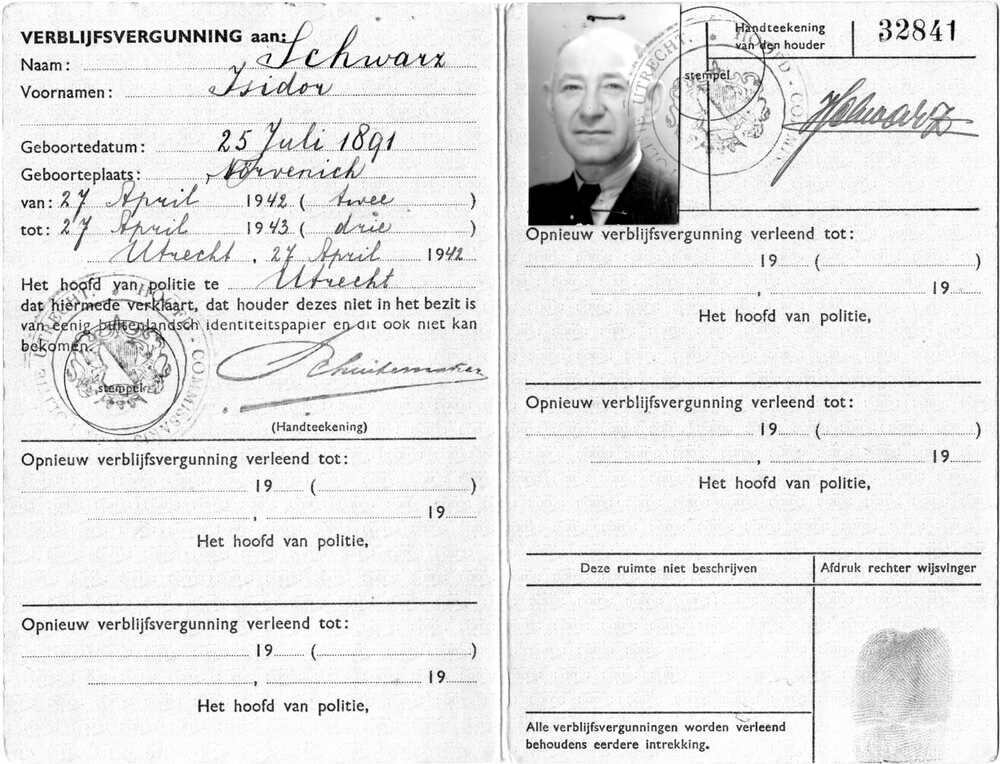 VERBLIJFSVERGUNNING aan:
Naam: Schwarz
Voornamen: Isidor
Geboortedatum: 25 Juli 1891
Geboorteplaats: Nörvenich
van: 27 April 1942 ( twee )
tot: 27 April 1943 ( drie )
Utrecht, 27 April 1942
Het hoofd van politie te Utrecht
dat hiermede verklaart, dat houder dezes niet in het bezit is
van eenig buitenlandsch identiteitspapier en dit ook niet kan
bekomen.
UTRECHT. HOOFD-COMMISSARIS
stempel
Schuitemaker
(Handteekening)
Opnieuw verblijfsvergunning verleend tot:
19 ( )
, 19
Het hoofd van politie,
Opnieuw verblijfsvergunning verleend tot:
19 ( )
, 19
Het hoofd van politie,
Handteekening
van den houder
32841
UTRECHT. HOOFD-COMM
stempel
Schwarz
Opnieuw verblijfsvergunning verleend tot:
19 ( )
, 19
Het hoofd van politie,
Opnieuw verblijfsvergunning verleend tot:
19 ( )
, 19
Het hoofd van politie,
Deze ruimte niet beschrijven
Afdruk rechter wijsvinger
Alle verblijfsvergunningen worden verleend
behoudens eerdere intrekking.